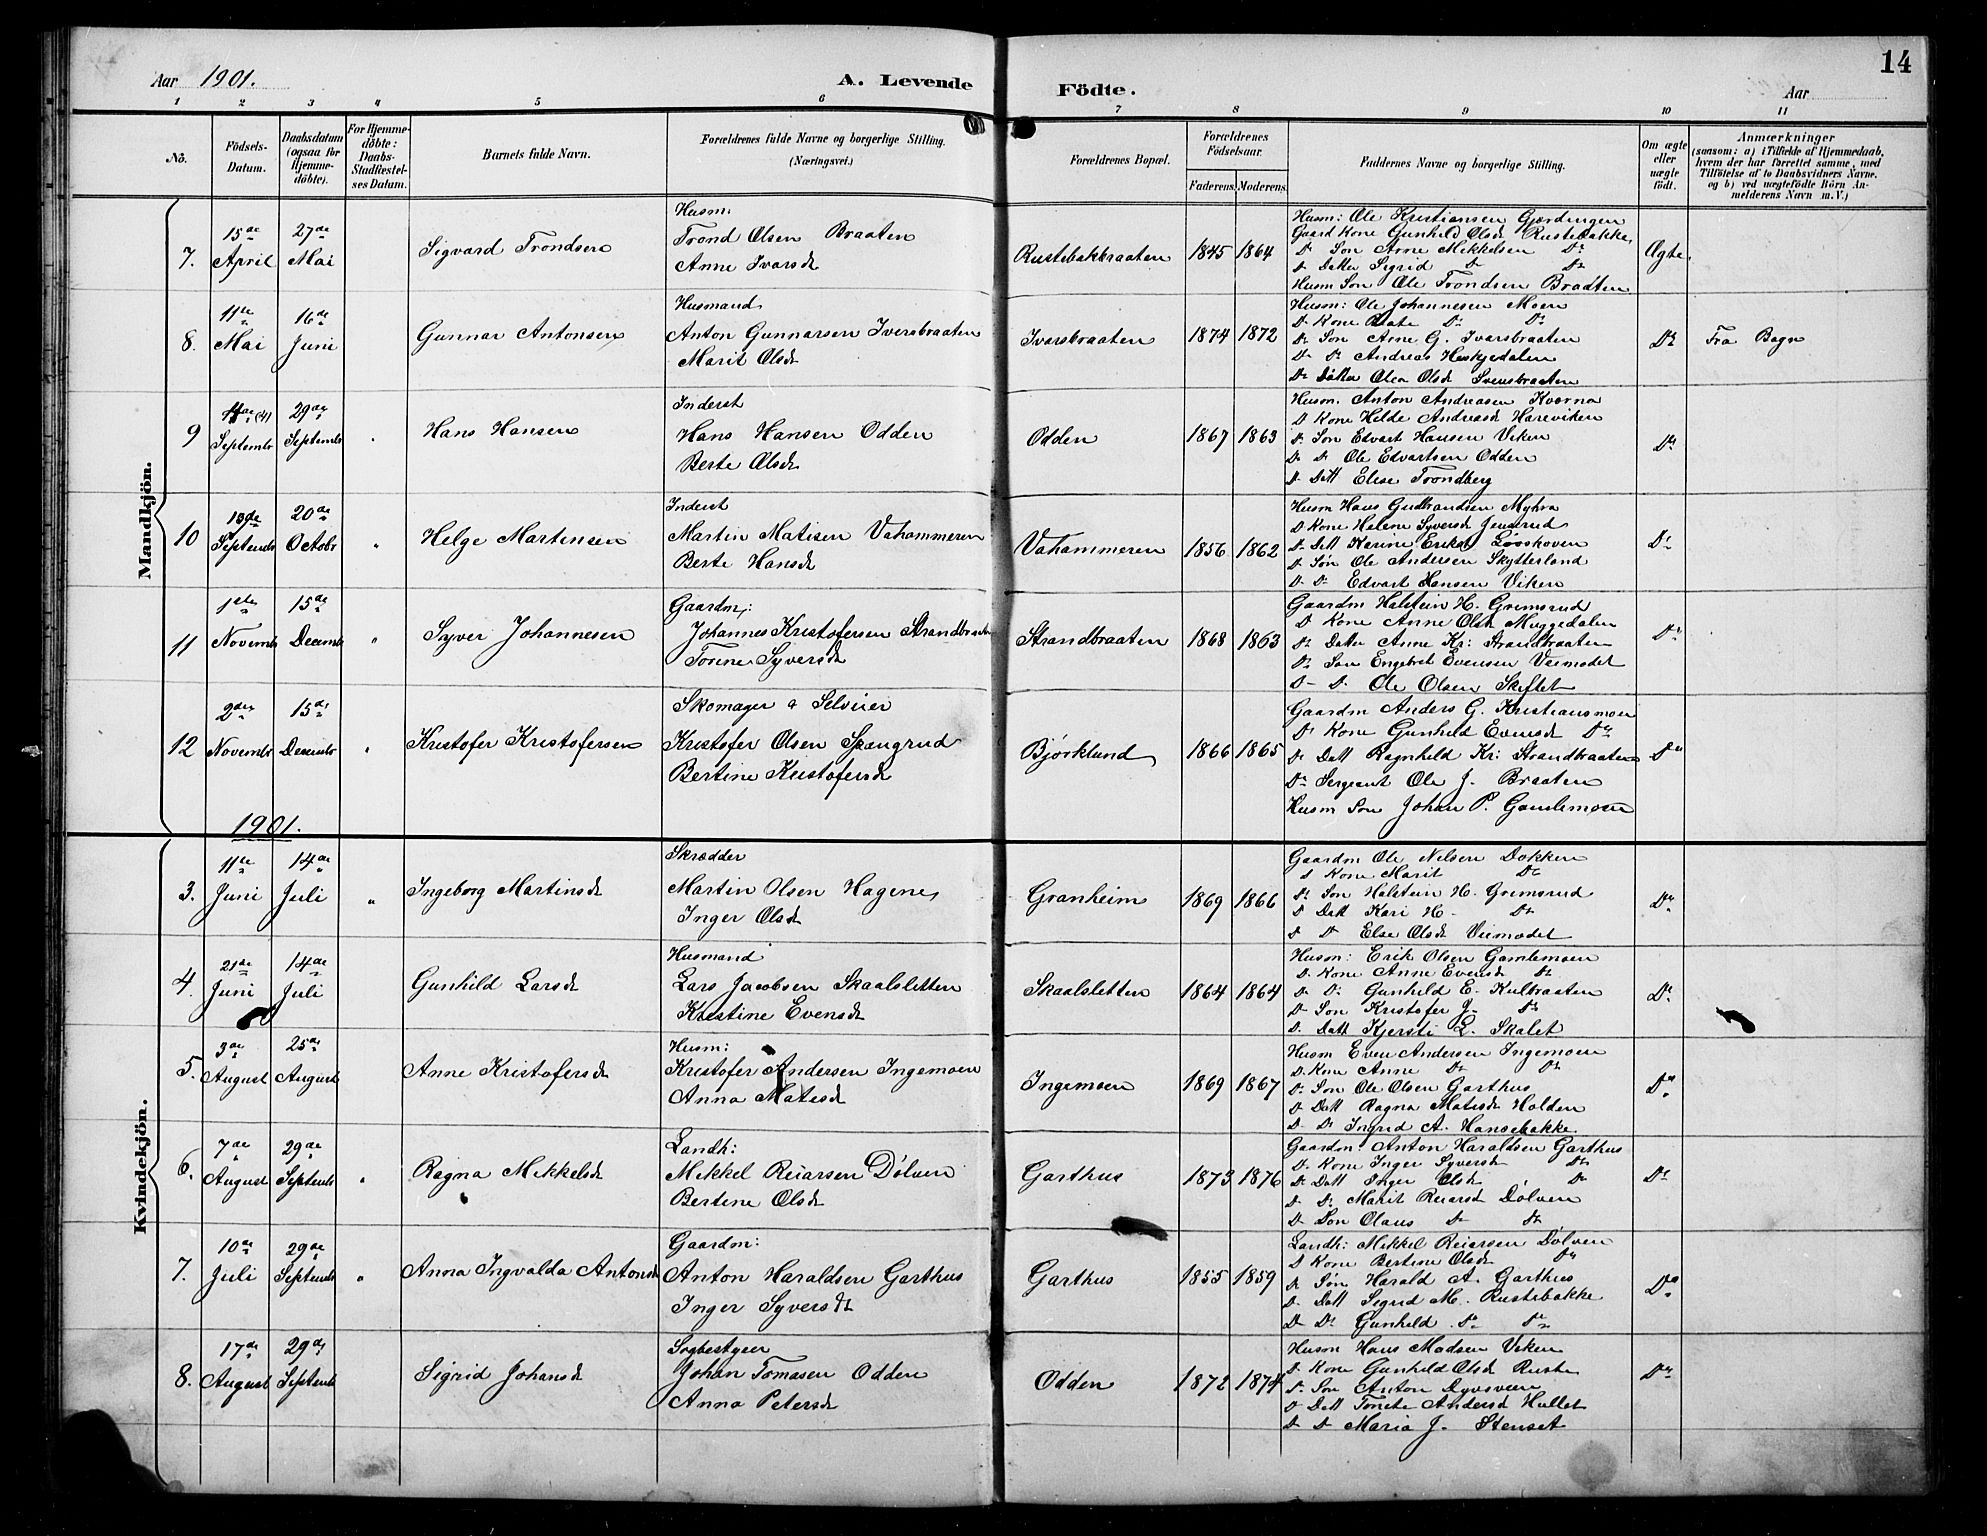 14
Aar 1901.
A. Levende Födte.
Aar
1 2 3 4 5 6 7 8 9 10 11
Nö.
Födsels-Datum.
Daabsdatum (ogsaa for Hjemmedöbte).
For Hjemmedöbte: Daabs-Stadfæstelses Datum.
Barnets fulde Navn.
Forældrenes fulde Navne og borgerlige Stilling. (Næringsvei.)
Forældrenes Bopæl.
Forældrenes Födselsaar.
Faderens. Moderens.
Faddernes Navne og borgerlige Stilling.
Om ægte eller uægte födt.
Anmærkninger
(saasom: a) i Tilfælde af Hjemmedaab, hvem der har forrettet samme, med Tilföielse af to Daabsvidners Navne, og b) ved uægtefödte Börn Anmelderens Navn m. V.)
Mandkjön.
7. 15de April 27de Mai
Sigvard Trondsen
Husm:
Trond Olsen Braaten
Anne Ivarsd
Rustebakbraaten 1845 1864
Husm: Ole Kristiansen Gjerdingen
Gaard Kone Gunhild Olsd Rustebakke
Dº Son Arne Mikkelsen Dº
Dº Datter Sigrid Dº Dº
Husm Son Ole Trondsen Braaten
Ægte.
8. 11te Mai 16de Juni
Gunnar Antonsen
Husmand
Anton Gunnarsen Iversbraaten
Marit Olsd
Ivarsbraaten 1874 1872
Husm: Ole Johannesen Moen
Dº Kone Beate Dº Dº
Dº Son Arne G. Ivarsbraaten
Dº Dº Andreas Heskjedalen
Dº Datter Olea Olsd Svensbraaten
Dº
Fra Bagn
9 4de (4) Septembr 29de Septembr "
Hans Hansen
Inderst
Hans Hansen Odden
Berte Olsd
Odden 1867 1863
Husm. Anton Andreasen Kverna
D Kone Helde Andreasd Hareviken
Dº Son Edvart Hansen Viken
Dº Dº Ole Edvartsen Odden
Dº Datt Elise Trondberg
Dº
10 Septembr 20de Octobr "
Helge Martinsen
Inderst
Martin Matisen Vahammeren
Berte Hansd
Vahammeren 1856 1862
Husm Hans Gudbrandsen Myhra
D Kone Helene Syversd Jenserud
Dº Datt Karine Eriksd
Dº Søn Ole Andersen Skytterland
Dº Dº Edvart Hansen Viken
Dº
11 1ste Novembr 15de Decembr "
Syver Johannesen
Gaardm:
Johannes Kristofersen Strandbraaten
Torine Syversd
Strandbraaten 1868 1863
Gaardm Halstein H. Grimsrud
D Kone Anne Olsd Muggedalen
Dº Datter Anne Kr: Strandbraaten
Dº Son Engebret Evensen Veimodet
D D Ole Olsen Skiftet
Dº
12 2den Novembr 15de Decembr "
Kristofer Kristofersen
Skomager & Selveier
Kristofer Olsen Spangrud
Bertine Kristofersd
Bjørklund 1866 1865
Gaardm Anders G. Kristiansmoen
Dº Kone Gunhild Evensd Dº
Dº Datt Ragnhild Kr: Strandbraaten
Dº Sergeant Ole J. Braaten
Husm Son Johan P. Gamlemoen
Dº
1901.
Kvindekjön.
3. 11te Juni 14de Juli "
Ingeborg Martinsd
Skrædder
Martin Olsen Hagene
Inger Olsd
Granheim 1869 1866
Gaardm Ole Nilsen Dokken
D Kone Marit Dº
Dº Son Halstein H. Grimsrud
D Datt Kari H. Dº
D D Else Olsd Veimodet
Dº
4. 21de Juni 14de Juli
Gunhild Larsd
Husmand
Lars Jacobsen Skaalsletten
Kristine Evensd
Skaalsletten 1864 1864
Husm: Erik Olsen Gamlemoen
D. Kone Anne Evensd Dº
Dº Dº Gunhild E. Kulbraaten
Dº Son Kristofer J. Dº
D. Datt Kjersti L. Skalet
Dº
5. 3de August 25de August
Anne Kristofersd
Husm:
Kristofer Andersen Ingemoen
Anna Matisd
Ingemoen 1869 1867
Husm Even Andersen Ingemoen
D. Kone Anne Dº Dº
D. Son Ole Olsen Garthus
Dº Datt Ragna Matisd Holden
D. D Ingrid A. Hansebakke
Dº
6. 7de August 29de Septembr "
Ragna Mikkelsd
Landh:
Mikkel Reiarsen Dølven
Bertine Olsd
Garthus 1873 1876
Gaardm. Anton Haraldsen Garthus
D. Kone Inger Syversd Dº
Dº Datt Inger Olsd Dº
D D. Marit Reiarsd Dølven
Dº Son Olaus Dº Dº
Dº
7. 10de Juli 29de Septembr "
Anna Ingvalda Antonsd
Gaardm:
Anton Haraldsen Garthus
Inger Syversd
Garthus 1855 1859
Landh: Mikkel Reiarsen Dølven
D Kone Bertine Olsd Dº
Dº Søn Harald A. Garthus
D. Datt Sigrid M. Rustebakke
D D. Gunhild Dº Dº
Dº
8. 17de August 29de Septemb
Sigrid Johansd
Johan Tomasen Odden
Anna Petersd
Odden 1872 1874
Husm Hans Madsen Viken
D. Kone Gunhild Olsd Ruste
Dº Son Anton Dyvsveen
D Datt Tonete Andersd Hullet
D D Maria J. Stenset
Dº